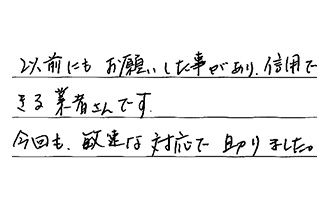 以前にもお願いした事があり、信用で
きる業者さんです。
今回も、敏速な対応で助りました。